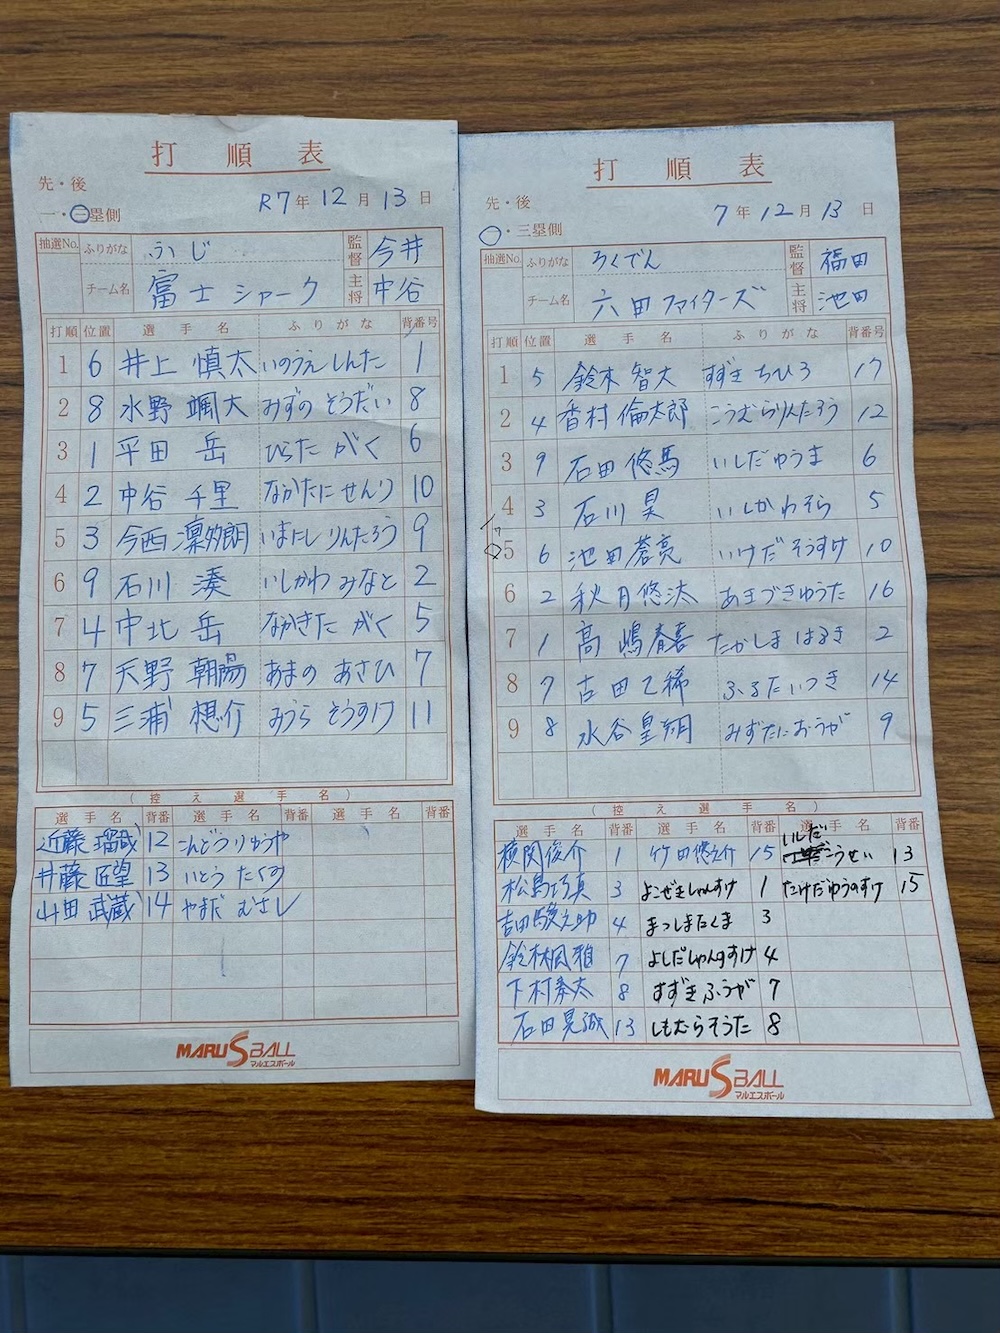 打順表
先・後
一・三塁側
R7年 12月 13日
抽選No. ふりがな ふじ 監督 今井
チーム名 富士シャーク 主将 中谷
打順 位置 選手名 ふりがな 背番号
1 6 井上 慎太 いのうえ しんた 1
2 8 水野 颯大 みずの そうだい 8
3 1 平田 岳 ひらた がく 6
4 2 中谷 千里 なかたに せんり 10
5 3 今西 凛太朗 いまにし りんたろう 9
6 9 石川 湊 いしかわ みなと 2
7 4 中北 岳 なかきた がく 5
8 7 天野 朝陽 あまの あさひ 7
9 5 三浦 想介 みうら そうすけ 11
(控え選手名)
選手名 背番 選手名 背番 選手名 背番
近藤 瑠成 12 こんどうりゅうや
井藤 匠望 13 いとう たくの
山田 武蔵 14 やまだ むさし
MARU S BALL
マルエスボール
打順表
先・後
・三塁側
7年 12月 13日
抽選No. ふりがな ろくでん 監督 福田
チーム名 六田ファイターズ 主将 池田
打順 位置 選手名 ふりがな 背番号
1 5 鈴木 智大 すずき ちひろ 17
2 4 香村 倫太郎 こうむらりんたろう 12
3 9 石田 悠馬 いしだ ゆうま 6
4 3 石川 昊 いしかわ そら 5
5 6 池田 蒼亮 いけだ そうすけ 10
6 2 秋月 悠汰 あきづきゆうた 16
7 1 高嶋 春喜 たかしま はるき 2
8 7 古田 乙稀 ふるた いつき 14
9 8 水谷 皇翔 みずたに おうが 9
(控え選手名)
選手名 背番 選手名 背番 選手名 背番
横関俊介 1 竹田悠之介 15 いしだ こうせい 13
松島巧真 3 よこぜきしゅんすけ 1 たけだゆうのすけ 15
吉田駿之助 4 まつしまたくま 3
鈴木楓雅 7 よしだしゅんすけ 4
下村奏太 8 すずきふうが 7
石田晃誠 13 しもむらそうた 8
MARU S BALL
マルエスボール